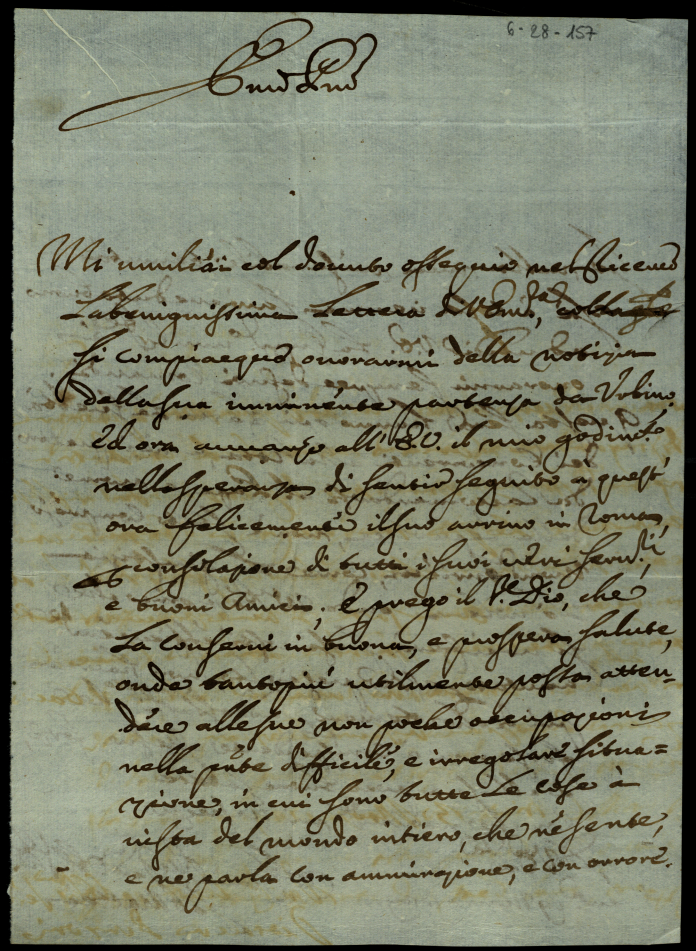 6-28-157
Em.o Pnē
Mi umiliai col dovuto ossequio nel Ricever
La benignissima Lettera di V. Em.za,
si compiacque onorarmi della notizia
della sua imminente partenza da Urbino.
Ed ora avvanzo all'E.V. il mio godim.to
nella speranza di sentir seguito à quest'
ora felicemente il suo arrivo in Roma,
consolazione di tutti i suoi veri serv.ri,
e buoni Amici. E prego il S.e Dio, che
La conservi in buona, e prospera salute,
onde tantopiù utilmente possa atten-
dere alle sue non poche occupazioni
nella pñte difficile, e irregolare situa=
zione, in cui sono tutte Le cose à
vista del mondo intiero, che ne sente,
e ne parla con ammirazione, e con orrore.